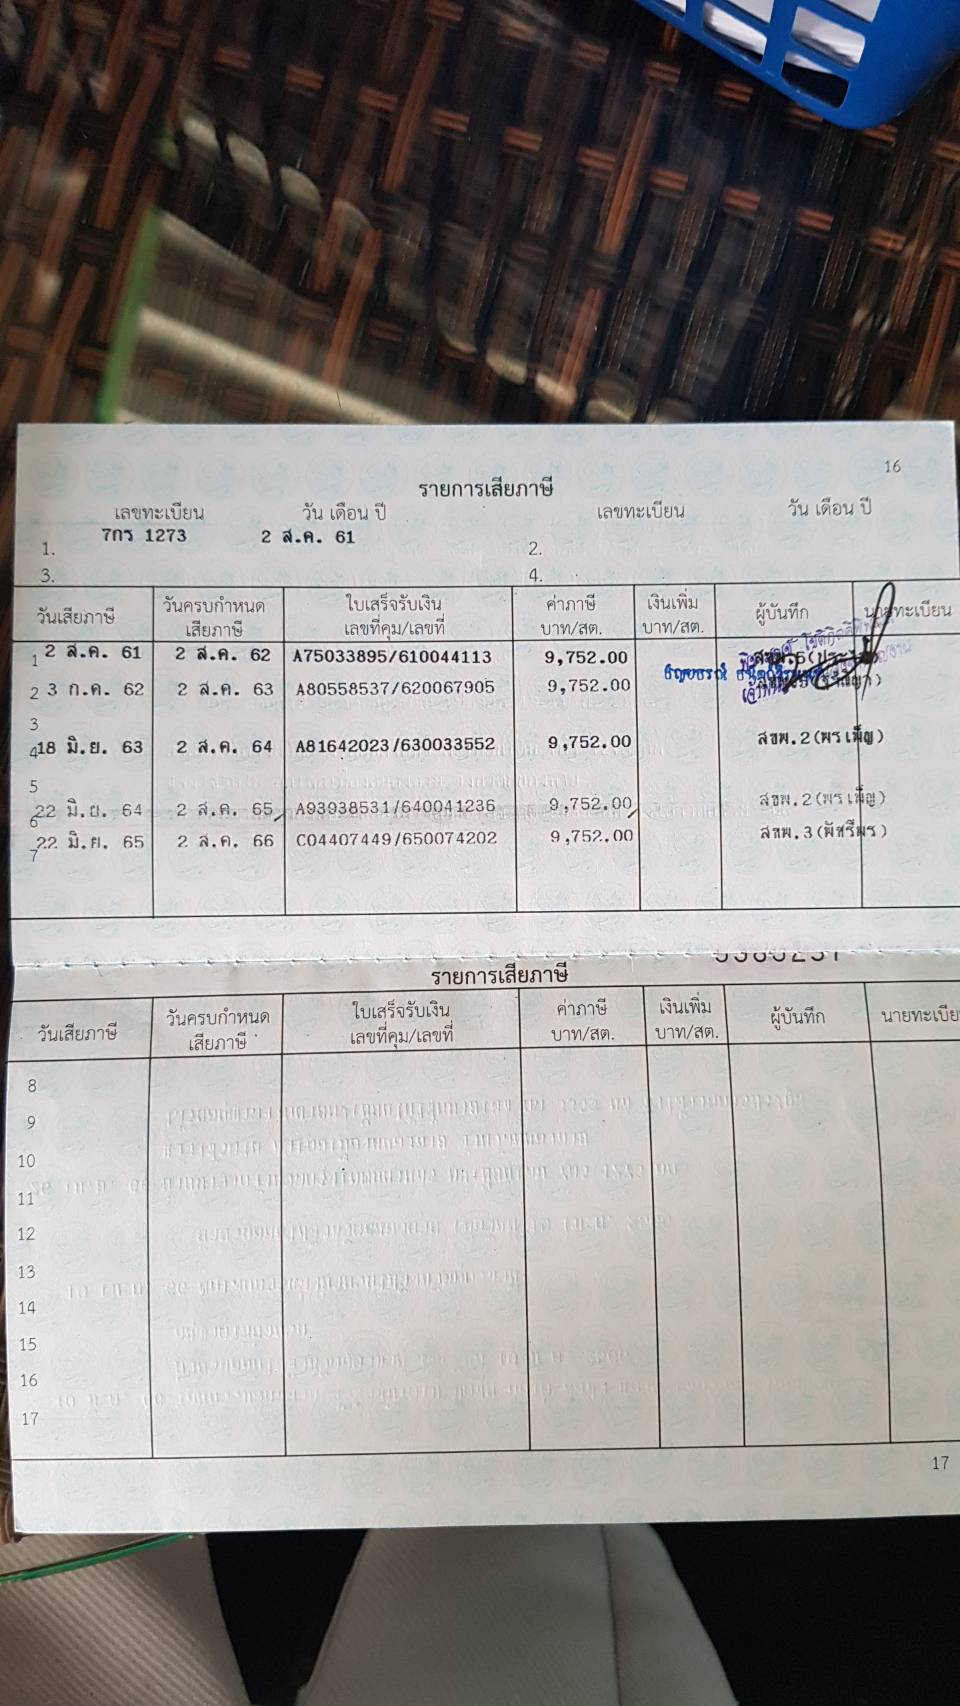 16
รายการเสียภาษี
เลขทะเบียน วัน เดือน ปี เลขทะเบียน วัน เดือน ปี
1. 7กร 1273 2 ส.ค. 61 2.
3. 4.
วันเสียภาษี วันครบกำหนดเสียภาษี ใบเสร็จรับเงิน เลขที่คุม/เลขที่ ค่าภาษี บาท/สต. เงินเพิ่ม บาท/สต. ผู้บันทึก นายทะเบียน
1 2 ส.ค. 61 2 ส.ค. 62 A75033895/610044113 9,752.00
2 3 ก.ค. 62 2 ส.ค. 63 A80558537/620067905 9,752.00
3
4 18 มิ.ย. 63 2 ส.ค. 64 A81642023/630033552 9,752.00 สขพ.2(พรเพ็ญ)
5
6 22 มิ.ย. 64 2 ส.ค. 65 A93938531/640041236 9,752.00 สขพ.2(พรเพ็ญ)
7 22 มิ.ย. 65 2 ส.ค. 66 C04407449/650074202 9,752.00 สขพ.3(พัชรีพร)
รายการเสียภาษี
วันเสียภาษี วันครบกำหนดเสียภาษี ใบเสร็จรับเงิน เลขที่คุม/เลขที่ ค่าภาษี บาท/สต. เงินเพิ่ม บาท/สต. ผู้บันทึก
8
9
10
11
12
13
14
15
16
17
17